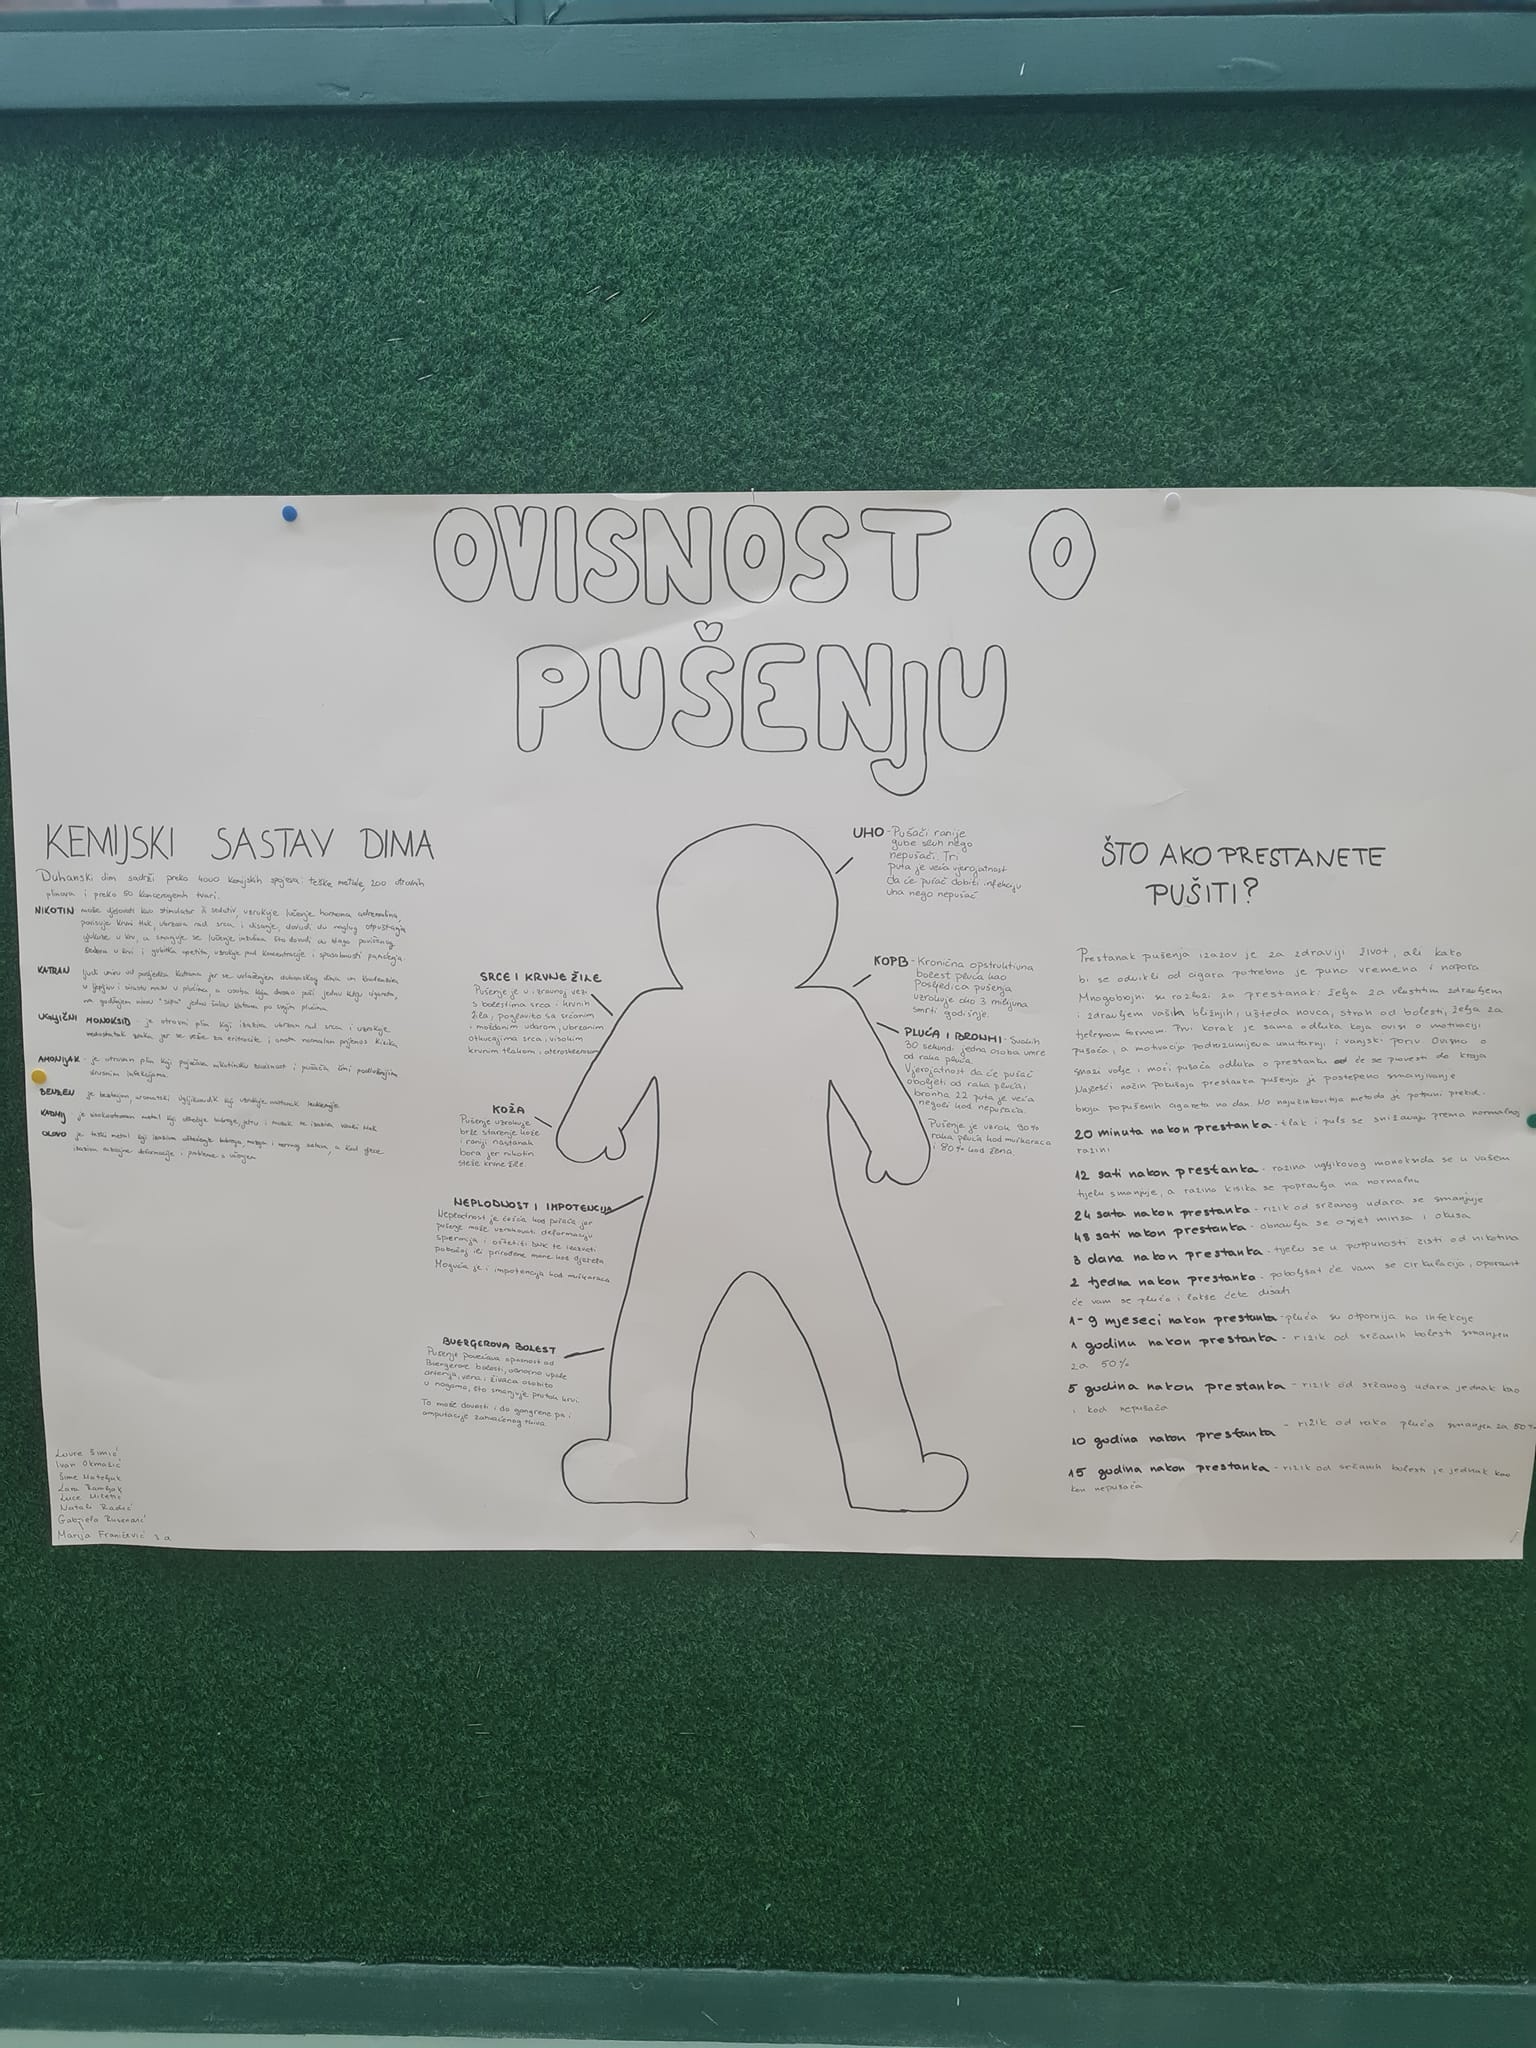 OVISNOST O
PUŠENJU
KEMIJSKI SASTAV DIMA
Duhanski dim sadrži preko 4000 kemijskih spojeva: teške metale, 200 otrovnih
plinova i preko 50 kancerogenih tvari.
NIKOTIN može djelovati kao stimulator ili sedativ, uzrokuje lučenje hormona adrenalina,
povisuje krvni tlak, ubrzava rad srca i disanje, dovodi do naglog otpuštanja
glukoze u krv, a smanjuje se lučenje inzulina što dovodi do blago povišenog
šećera u krvi i gubitka apetita, uzrokuje pad koncentracije i sposobnosti pamćenja.
KATRAN ljudi umiru od posljedica katrana jer se udisanjem duhanskog dima on kondenzira
u ljepljivu i sirastu masu u plućima, a osoba koja dnevno puši jednu kutiju cigareta,
na godišnjem nivou "sipa" jednu šalicu katrana po svojim plućima.
UGLJIČNI MONOKSID je otrovni plin koji izaziva ubrzan rad srca i uzrokuje
nedostatak zraka jer se veže za eritrocite i ometa normalan prijenos kisika
AMONIJAK - je otrovan plin koji pojačava nikotinsku ovisnost i pušača čini podložnijim
virusnim infekcijama.
BENZEN je bezbojan, aromatski ugljikovodik koji uzrokuje nastanak leukemije
KADMIJ je visokootrovan metal koji oštećuje bubrege, jetru i mozak te izaziva visoki tlak
OLOVO je teški metal koji izaziva oštećenje bubrega, mozga i nervnog sistema, a kod djece
izaziva deformacije i probleme s učenjem
SRCE I KRVNE ŽILE
Pušenje je u izravnoj vezi
s bolestima srca i krvnih
žila, poglavito sa srčanim
i moždanim udarom, ubrzanim
otkucajima srca, visokim
krvnim tlakom i aterosklerozom
KOŽA
Pušenje uzrokuje
brže starenje kože
i raniji nastanak
bora jer nikotin
steže krvne žile.
NEPLODNOST I IMPOTENCIJA
Neplodnost je češća kod pušača jer
pušenje može uzrokovati deformaciju
spermija i oštetiti DNK te izazvati
pobačaj ili prirođene mane kod djeteta
Moguća je i impotencija kod muškaraca
BUERGEROVA BOLEST
Pušenje povećava opasnost od
Buergerove bolesti, odnosno upale
arterija, vena i živaca osobito
u nogama, što smanjuje protok krvi.
To može dovesti i do gangrene pa i
amputacije zahvaćenog tkiva.
UHO - Pušači ranije
gube sluh nego
nepušači. Tri
puta je veća vjerojatnost
da će pušač dobiti infekciju
uha nego nepušač
KOPB - Kronična opstruktivna
bolest pluća kao
posljedica pušenja
uzrokuje oko 3 milijuna
smrti godišnje.
PLUĆA I BRONHI - Svakih
30 sekundi jedna osoba umre
od raka pluća.
Vjerojatnost da će pušač
oboljeti od raka pluća i
bronha 22 puta je veća
negoli kod nepušača.
Pušenje je uzrok 90%
raka pluća kod muškaraca
i 80% kod žena.
ŠTO AKO PRESTANETE
PUŠITI?
Prestanak pušenja izazov je za zdraviji život, ali kako
bi se odvikli od cigara potrebno je puno vremena i napora
Mnogobrojni su razlozi za prestanak: želja za vlastitim zdravljem
i zdravljem vaših bližnjih, ušteda novca, strah od bolesti, želja za
tjelesnom formom. Prvi korak je sama odluka koja ovisi o motivaciji
pušača, a motivacija podrazumijeva unutarnji i vanjski poriv. Ovisno o
snazi volje i moći pušača odluka o prestanku će se provesti do kraja
Najčešći način pokušaja prestanka pušenja je postepeno smanjivanje
broja popušenih cigareta na dan. No najučinkovitija metoda je potpuni prekid.
20 minuta nakon prestanka - tlak i puls se snižavaju prema normalnoj
razini
12 sati nakon prestanka - razina ugljikovog monoksida se u vašem
tijelu smanjuje, a razina kisika se popravlja na normalnu
24 sata nakon prestanka - rizik od srčanog udara se smanjuje
48 sati nakon prestanka - obnavlja se osjet mirisa i okusa
3 dana nakon prestanka - tijelo se u potpunosti čisti od nikotina
2 tjedna nakon prestanka - poboljšat će vam se cirkulacija, oporavit
će vam se pluća i lakše ćete disati
1-9 mjeseci nakon prestanka - pluća su otpornija na infekcije
1 godinu nakon prestanka - rizik od srčanih bolesti smanjen
za 50%
5 godina nakon prestanka - rizik od srčanog udara jednak kao
i kod nepušača
10 godina nakon prestanka - rizik od raka pluća smanjen za 50%
15 godina nakon prestanka - rizik od srčanih bolesti je jednak kao
kod nepušača
Lovre Šimić
Ivan Okmažić
Šime Mateljak
Lara Ramljak
Luce Miletić
Natali Radić
Gabrijela
Marija Franičević 3.a